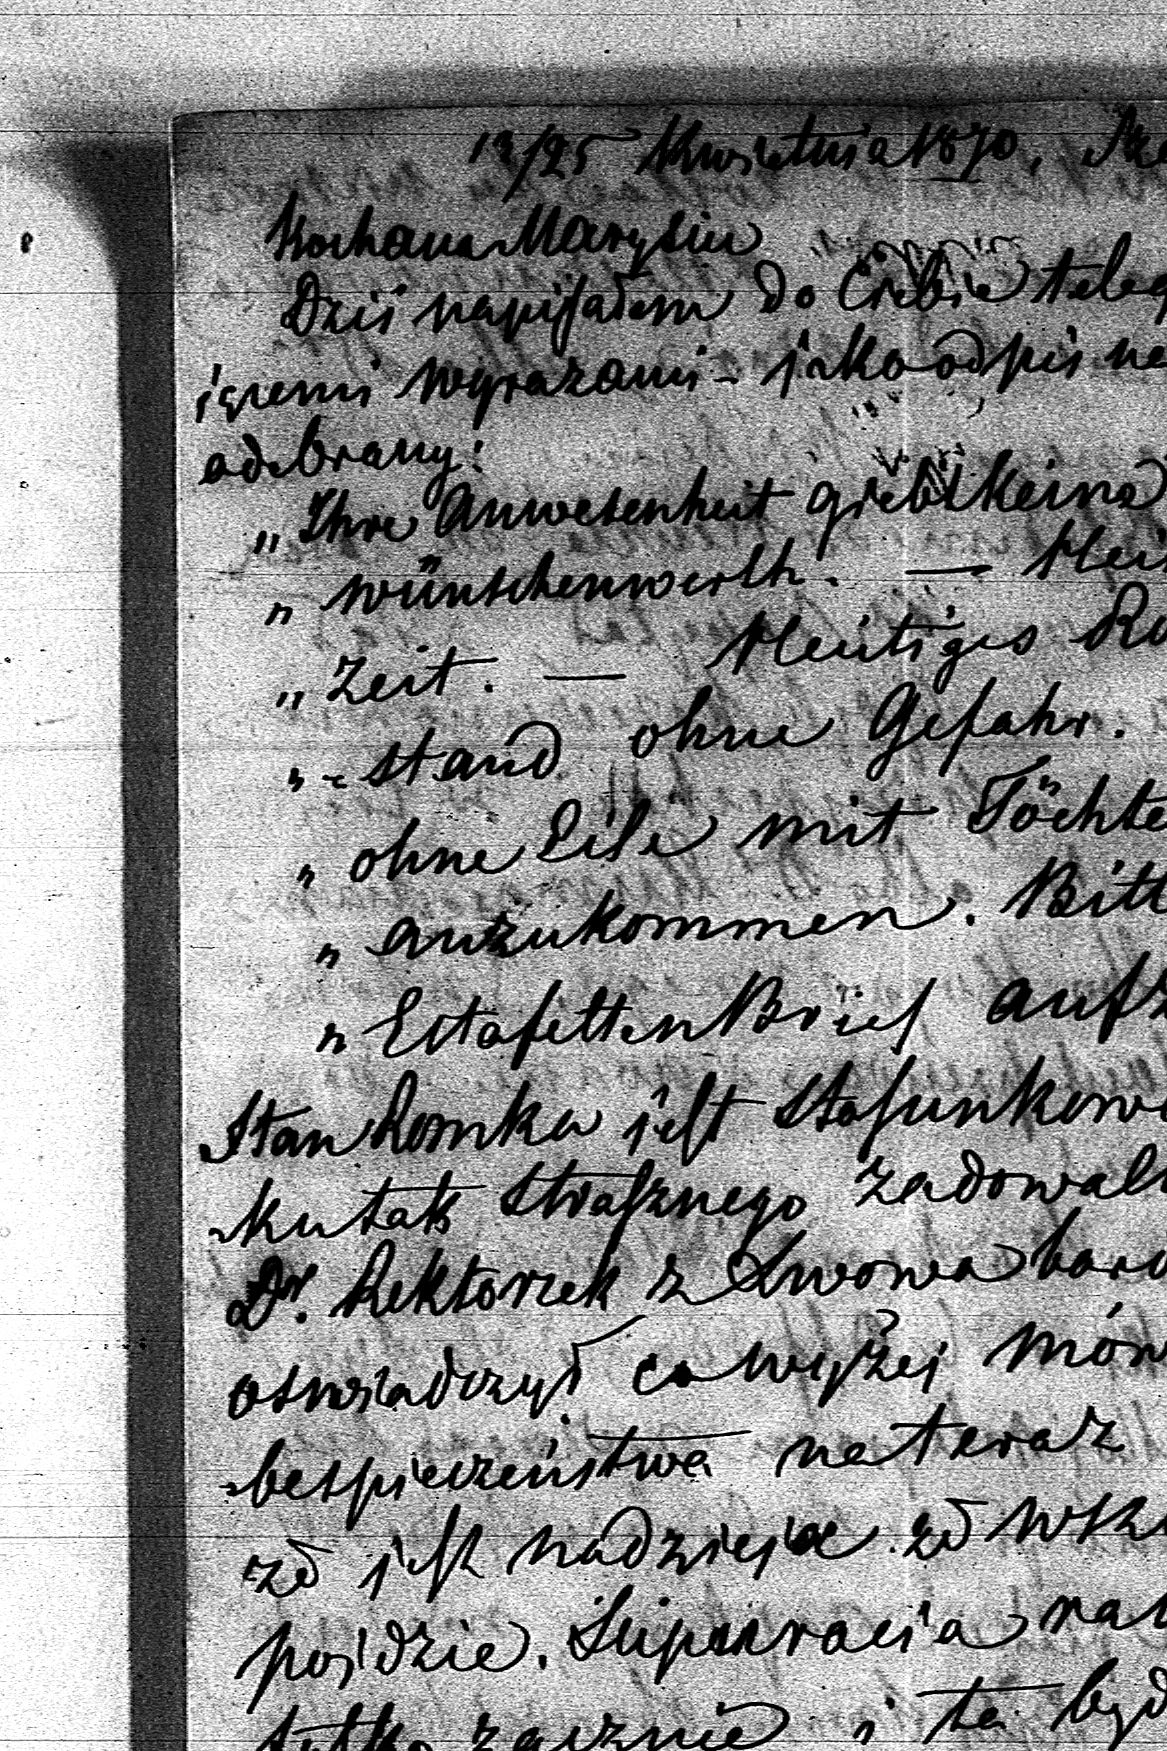 13/25 Kwietnia 1870.
Kochana Marysiu
Dziś napisałem do Ciebie teleg
jącemi wyrazami – jako odpis na
odebrany:
„ Ihre Anwesenheit giebt keine
„ wünschenwerth. —
„ Zeit. — Heutiges
„ -stand ohne Gefahr.
„ ohne Eile mit Töchte
„ anzukommen. Bitt
„ Estafetten Brief auf
Stan Romka jest stosunkow
skutek strasznego zadowaln
Dr. Rektorzek z Lwowa bard
oświadczył co wyżej mów
bespieczeństwa na teraz
że jest nadzieja że wsz
pojdzie. Supuracia
tylko zacznie i ta będ